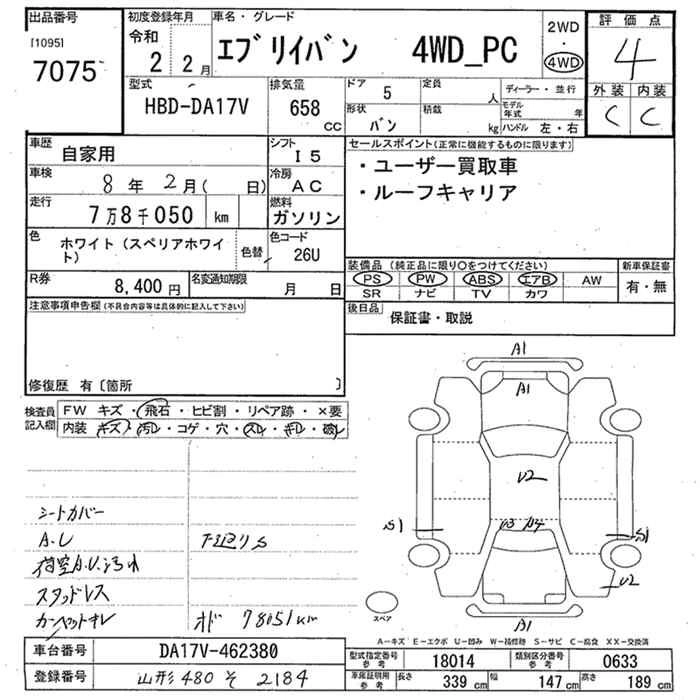 出品番号
[1095]
7075
初度登録年月
令和
2 2月
車名・グレード
エブリイバン 4WD_PC
2WD
・
4WD
評価点
4
外装 内装
C C
型式
HBD-DA17V
排気量
658
cc
ドア 5
形状 バン
定員 人
積載 kg
ディーラー・並行
モデル年式 年
ハンドル 左・右
車歴 自家用
シフト I5
車検 8年 2月( 日)
冷房 AC
走行 7万8千050 km
燃料 ガソリン
色 ホワイト(スペリアホワイト)
色替
色コード 26U
R券 8,400円
名変通知期限 月 日
セールスポイント(正常に機能するものに限ります)
・ユーザー買取車
・ルーフキャリア
装備品 (純正品に限り○をつけてください)
PS PW ABS エアB AW
SR ナビ TV カワ
新車保証書
有・無
後日品
保証書・取説
注意事項申告欄(不具合内容等は具体的に記入して下さい)
修復歴 有〔箇所 〕
検査員記入欄
FW キズ・飛石・ヒビ割・リペア跡・×要
内装 キズ・汚レ・コゲ・穴・スレ・キレ・破レ
シートカバー
A.U
下廻りS
荷室A.U.汚れ
スタッドレス
カーペットキレ
オド 78051km
A1
A1
U2
U3 U4
S1
S1
U2
B1
スペア
A-キズ E-エクボ U-凹み W-補修跡 S-サビ C-腐食 XX-交換済
車台番号 DA17V-462380
登録番号 山形 480 そ 2184
型式指定番号 参考 18014
類別区分番号 参考 0633
車庫証明用 参考
長さ 339 cm
幅 147 cm
高さ 189 cm